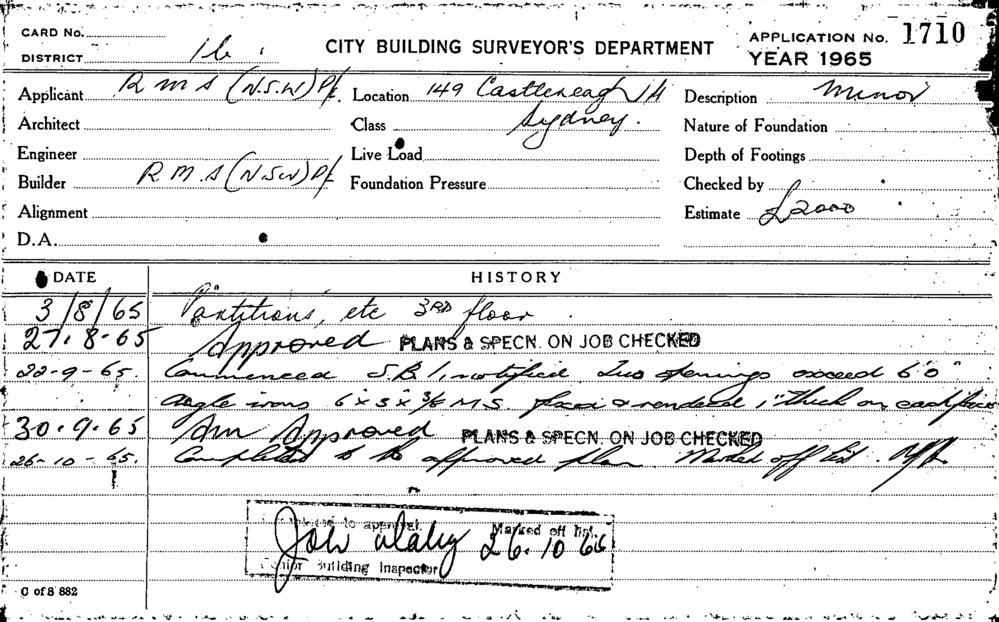 CARD No.
DISTRICT 16.
CITY BUILDING SURVEYOR'S DEPARTMENT
APPLICATION No. 1710
YEAR 1965
Applicant R M S (N.S.W) P/L. Location 149 Castlereagh St Description Minor
Architect Class Sydney. Nature of Foundation
Engineer Live Load Depth of Footings
Builder R.M.S (N.S.W) P/L Foundation Pressure Checked by
Alignment Estimate £2000
D.A.
DATE HISTORY
3/8/65 Partitions, etc 3RD floor
27.8-65 Approved PLANS & SPECN. ON JOB CHECKED
22-9-65. Commenced S.B.I. notified. Two openings exceed 6'0"
angle irons 6"x3"x3/8 M.S. & rendered 1" thick on
30.9.65 Am Approved PLANS & SPECN. ON JOB CHECKED
26-10-65. Completed to the approved plan. Marked off list.
Completed to approval. Marked off list.
26.10 65
Senior Building Inspector
C of S 882